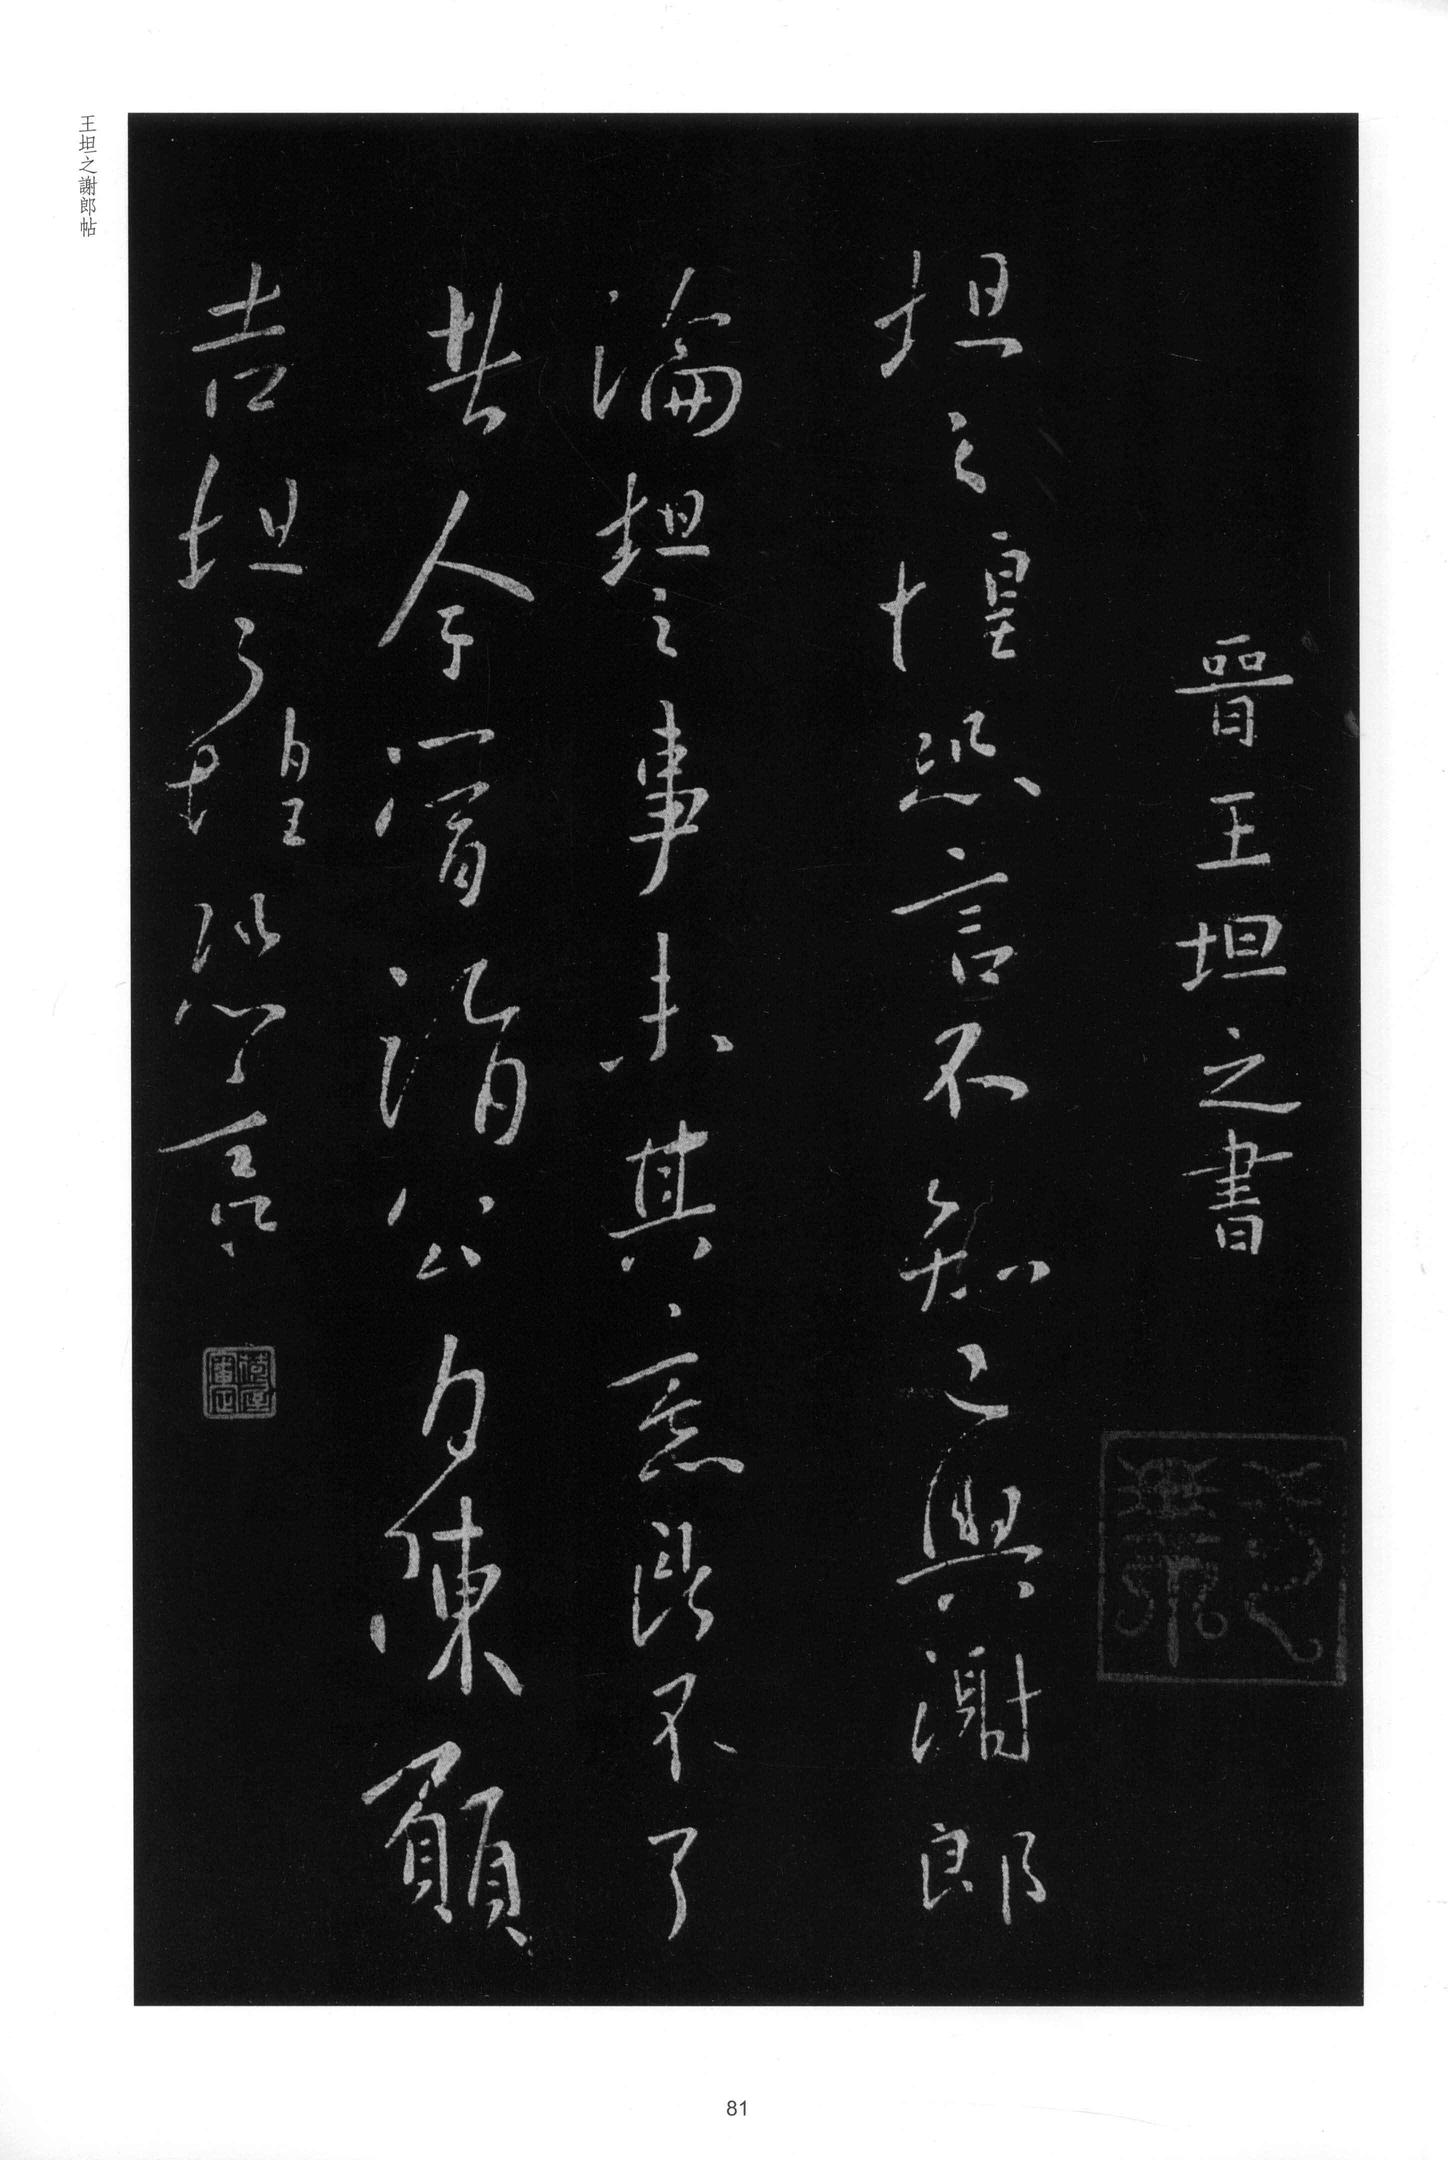 王坦之謝郎帖
晉王坦之書
坦之惶恐言不知已與謝郎
論坦之事未其意既不了
者今當詣公自陳願
告坦之惶恐言
81